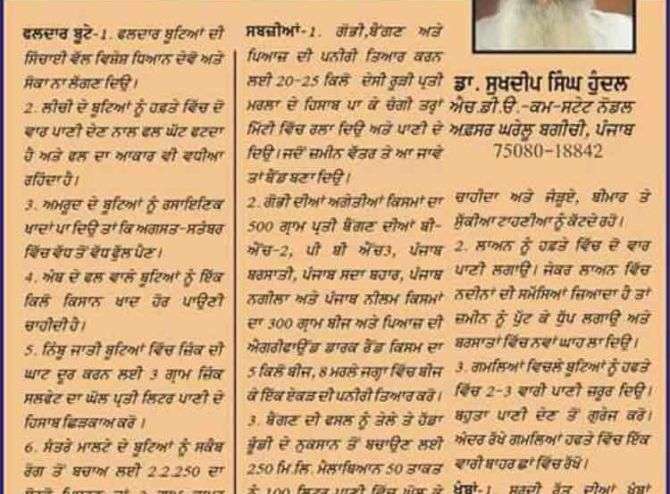 ਫਲਦਾਰ ਬੂਟੇ-1. ਫਲਦਾਰ ਬੂਟਿਆਂ ਦੀ
ਸਿੰਚਾਈ ਵੱਲ ਵਿਸ਼ੇਸ਼ ਧਿਆਨ ਦੇਵੋ ਅਤੇ
ਸੋਕਾ ਨਾ ਲੱਗਣ ਦਿਉ।
2. ਲੀਚੀ ਦੇ ਬੂਟਿਆਂ ਨੂੰ ਹਫ਼ਤੇ ਵਿੱਚ ਦੋ
ਵਾਰ ਪਾਣੀ ਦੇਣ ਨਾਲ ਫਲ ਘੱਟ ਫਟਦਾ
ਹੈ ਅਤੇ ਫਲ ਦਾ ਆਕਾਰ ਵੀ ਵਧੀਆ
ਰਹਿੰਦਾ ਹੈ।
3. ਅਮਰੂਦ ਦੇ ਬੂਟਿਆਂ ਨੂੰ ਰਸਾਇਣਿਕ
ਖਾਦਾਂ ਪਾ ਦਿਉ ਤਾਂ ਕਿ ਅਗਸਤ-ਸਤੰਬਰ
ਵਿੱਚ ਵੱਧ ਤੋਂ ਵੱਧ ਫੁੱਲ ਪੈਣ।
4. ਅੰਬ ਦੇ ਫਲ ਵਾਲੇ ਬੂਟਿਆਂ ਨੂੰ ਇੱਕ
ਕਿਲੋ ਕਿਸਾਨ ਖਾਦ ਹੋਰ ਪਾਉਣੀ
ਚਾਹੀਦੀ ਹੈ।
5. ਨਿੰਬੂ ਜਾਤੀ ਬੂਟਿਆਂ ਵਿੱਚ ਜ਼ਿੰਕ ਦੀ
ਘਾਟ ਦੂਰ ਕਰਨ ਲਈ 3 ਗ੍ਰਾਮ ਜ਼ਿੰਕ
ਸਲਫੇਟ ਦਾ ਘੋਲ ਪ੍ਰਤੀ ਲਿਟਰ ਪਾਣੀ ਦੇ
ਹਿਸਾਬ ਛਿੜਕਾਅ ਕਰੋ।
6. ਸੰਤਰੇ ਮਾਲਟੇ ਦੇ ਬੂਟਿਆਂ ਨੂੰ ਸਕੈਬ
ਰੋਗ ਤੋਂ ਬਚਾਅ ਲਈ 2.2.250 ਦਾ
ਸਬਜ਼ੀਆਂ-1. ਗੋਭੀ,ਬੈਂਗਣ ਅਤੇ
ਪਿਆਜ਼ ਦੀ ਪਨੀਰੀ ਤਿਆਰ ਕਰਨ
ਲਈ 20-25 ਕਿਲੋ ਦੇਸੀ ਰੂੜੀ ਪ੍ਰਤੀ
ਮਰਲਾ ਦੇ ਹਿਸਾਬ ਪਾ ਕੇ ਚੰਗੀ ਤਰ੍ਹਾਂ
ਮਿੱਟੀ ਵਿੱਚ ਰਲਾ ਦਿਉ ਅਤੇ ਪਾਣੀ ਦੇ
ਦਿਉ।ਜਦੋਂ ਜ਼ਮੀਨ ਵੱਤਰ ਤੇ ਆ ਜਾਵੇ
ਤਾਂ ਬੈੱਡ ਬਣਾ ਦਿਉ।
2. ਗੋਭੀ ਦੀਆਂ ਅਗੇਤੀਆਂ ਕਿਸਮਾਂ ਦਾ
500 ਗ੍ਰਾਮ ਪ੍ਰਤੀ ਬੈਂਗਣ ਦੀਆਂ ਬੀ-
ਐੱਚ-2, ਪੀ ਬੀ ਐੱਚ3, ਪੰਜਾਬ
ਬਰਸਾਤੀ, ਪੰਜਾਬ ਸਦਾ ਬਹਾਰ, ਪੰਜਾਬ
ਨਗੀਲਾ ਅਤੇ ਪੰਜਾਬ ਨੀਲਮ ਕਿਸਮਾਂ
ਦਾ 300 ਗ੍ਰਾਮ ਬੀਜ ਅਤੇ ਪਿਆਜ਼ ਦੀ
ਐਗਰੀਫਾਊਂਡ ਡਾਰਕ ਰੈੱਡ ਕਿਸਮ ਦਾ
5 ਕਿਲੋ ਬੀਜ, 8 ਮਰਲੇ ਜਗ੍ਹਾ ਵਿੱਚ ਬੀਜ
ਕੇ ਇੱਕ ਏਕੜ ਦੀ ਪਨੀਰੀ ਤਿਆਰ ਕਰੋ।
3. ਬੈਂਗਣ ਦੀ ਫਸਲ ਨੂੰ ਤੇਲੇ ਤੇ ਹੱਡਾ
ਭੂੰਡੀ ਦੇ ਨੁਕਸਾਨ ਤੋਂ ਬਚਾਉਣ ਲਈ
250 ਮਿ.ਲਿ. ਮੈਲਾਥਿਆਨ 50 ਤਾਕਤ
ਨੂੰ 100 ਲਿਟਰ ਪਾਣੀ ਵਿੱਚ ਘੋਲ ਕੇ
ਡਾ. ਸੁਖਦੀਪ ਸਿੰਘ ਹੁੰਦਲ
ਐਚ.ਡੀ.ਓ.-ਕਮ-ਸਟੇਟ ਨੋਡਲ
ਅਫ਼ਸਰ ਘਰੇਲੂ ਬਗੀਚੀ, ਪੰਜਾਬ
75080-18842
ਚਾਹੀਦਾ ਅਤੇ ਜੰਡੂਏ, ਬੀਮਾਰ ਤੇ
ਸੁੱਕੀਆ ਟਾਹਣੀਆ ਨੂੰ ਕੱਟਦੇ ਰਹੋ।
2. ਲਾਅਨ ਨੂੰ ਹਫ਼ਤੇ ਵਿੱਚ ਦੋ ਵਾਰ
ਪਾਣੀ ਲਗਾਉ। ਜੇਕਰ ਲਾਅਨ ਵਿੱਚ
ਨਦੀਨਾਂ ਦੀ ਸਮੱਸਿਆ ਜ਼ਿਆਦਾ ਹੈ ਤਾਂ
ਜ਼ਮੀਨ ਨੂੰ ਪੁੱਟ ਕੇ ਧੁੱਪ ਲਗਾਉ ਅਤੇ
ਬਰਸਾਤਾਂ ਵਿੱਚ ਨਵਾਂ ਘਾਹ ਲਾ ਦਿਉ।
3. ਗਮਲਿਆਂ ਵਿਚਲੇ ਬੂਟਿਆਂ ਨੂੰ ਹਫ਼ਤੇ
ਵਿੱਚ 2-3 ਵਾਰੀ ਪਾਣੀ ਜ਼ਰੂਰ ਦਿਉ।
ਬਹੁਤਾ ਪਾਣੀ ਦੇਣ ਤੋਂ ਗੁਰੇਜ਼ ਕਰੋ।
ਅੰਦਰ ਰੱਖੇ ਗਮਲਿਆਂ ਹਫਤੇ ਵਿੱਚ ਇੱਕ
ਵਾਰੀ ਬਾਹਰ ਛਾਂ ਵਿੱਚ ਰੱਖੋ।
ਖੁੰਬਾਂ-1. ਸਰਦੀ ਰੁੱਤ ਦੀਆਂ ਖੁੰਬਾਂ